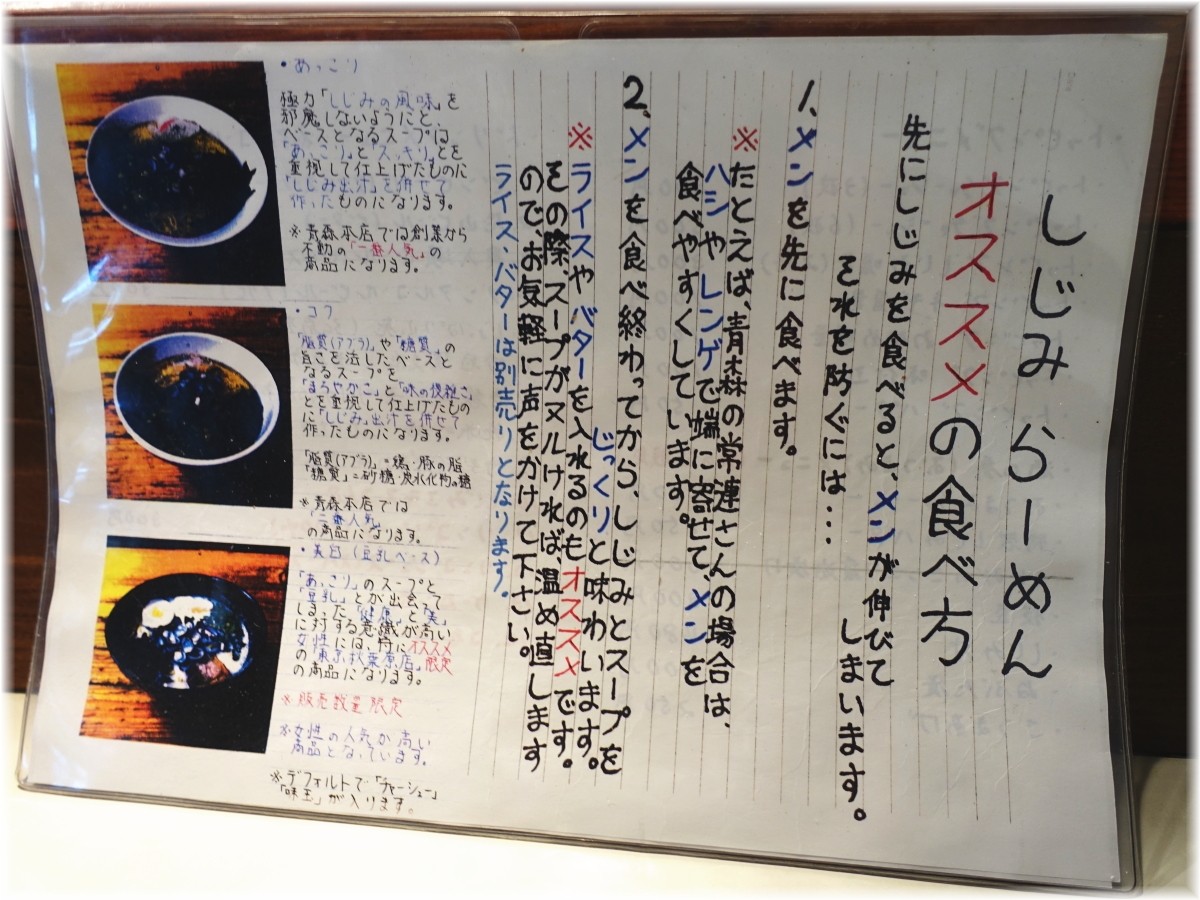 しじみらーめん
オススメの食べ方
先にしじみを食べると、メンが伸びて
しまいます。
それを防ぐには…
1、メンを先に食べます。
※たとえば、青森の常連さんの場合は、
ハシやレンゲで端に寄せて、メンを
食べやすくしています。
2、メンを食べ終わってから、しじみとスープを
じっくりと味わいます。
※ライスやバターを入れるのもオススメです。
その際、スープがヌルければ、温め直します
ので、お気軽に声をかけて下さい。
ライス、バターは別売りとなります。
・あっこり
極力「しじみの風味」を
邪魔しないようにと、
ベースとなるスープは
「あっこり」と「スッキリ」とを
重視して仕上げたものに
「しじみ出汁」を併せて
作ったものになります。
※青森本店では創業から
不動の「一番人気」の
商品になります。
・コク
「脂質(アブラ)」や「糖質」の
旨さを活したベースと
なるスープを
「まろやかさ」と「味の複雑さ」
とを重視して仕上げたもの
に「しじみ出汁を併せて
作ったものになります。
「脂質(アブラ)」=鶏・豚の脂
「糖質」=砂糖・炭水化物の糖
※青森本店では
「二番人気」
の商品になります。
・美白(豆乳ベース)
「あっこり」のスープと
「豆乳」とが出会って
しまった「健康」と「美」
に対する意識が高い
女性には、特にオススメ
の「東京秋葉原店」限定
の商品になります。
※販売数量限定
※女性の人気が高い
商品となっています。
※デフォルトで「チャーシュー」
「味玉」が入ります。